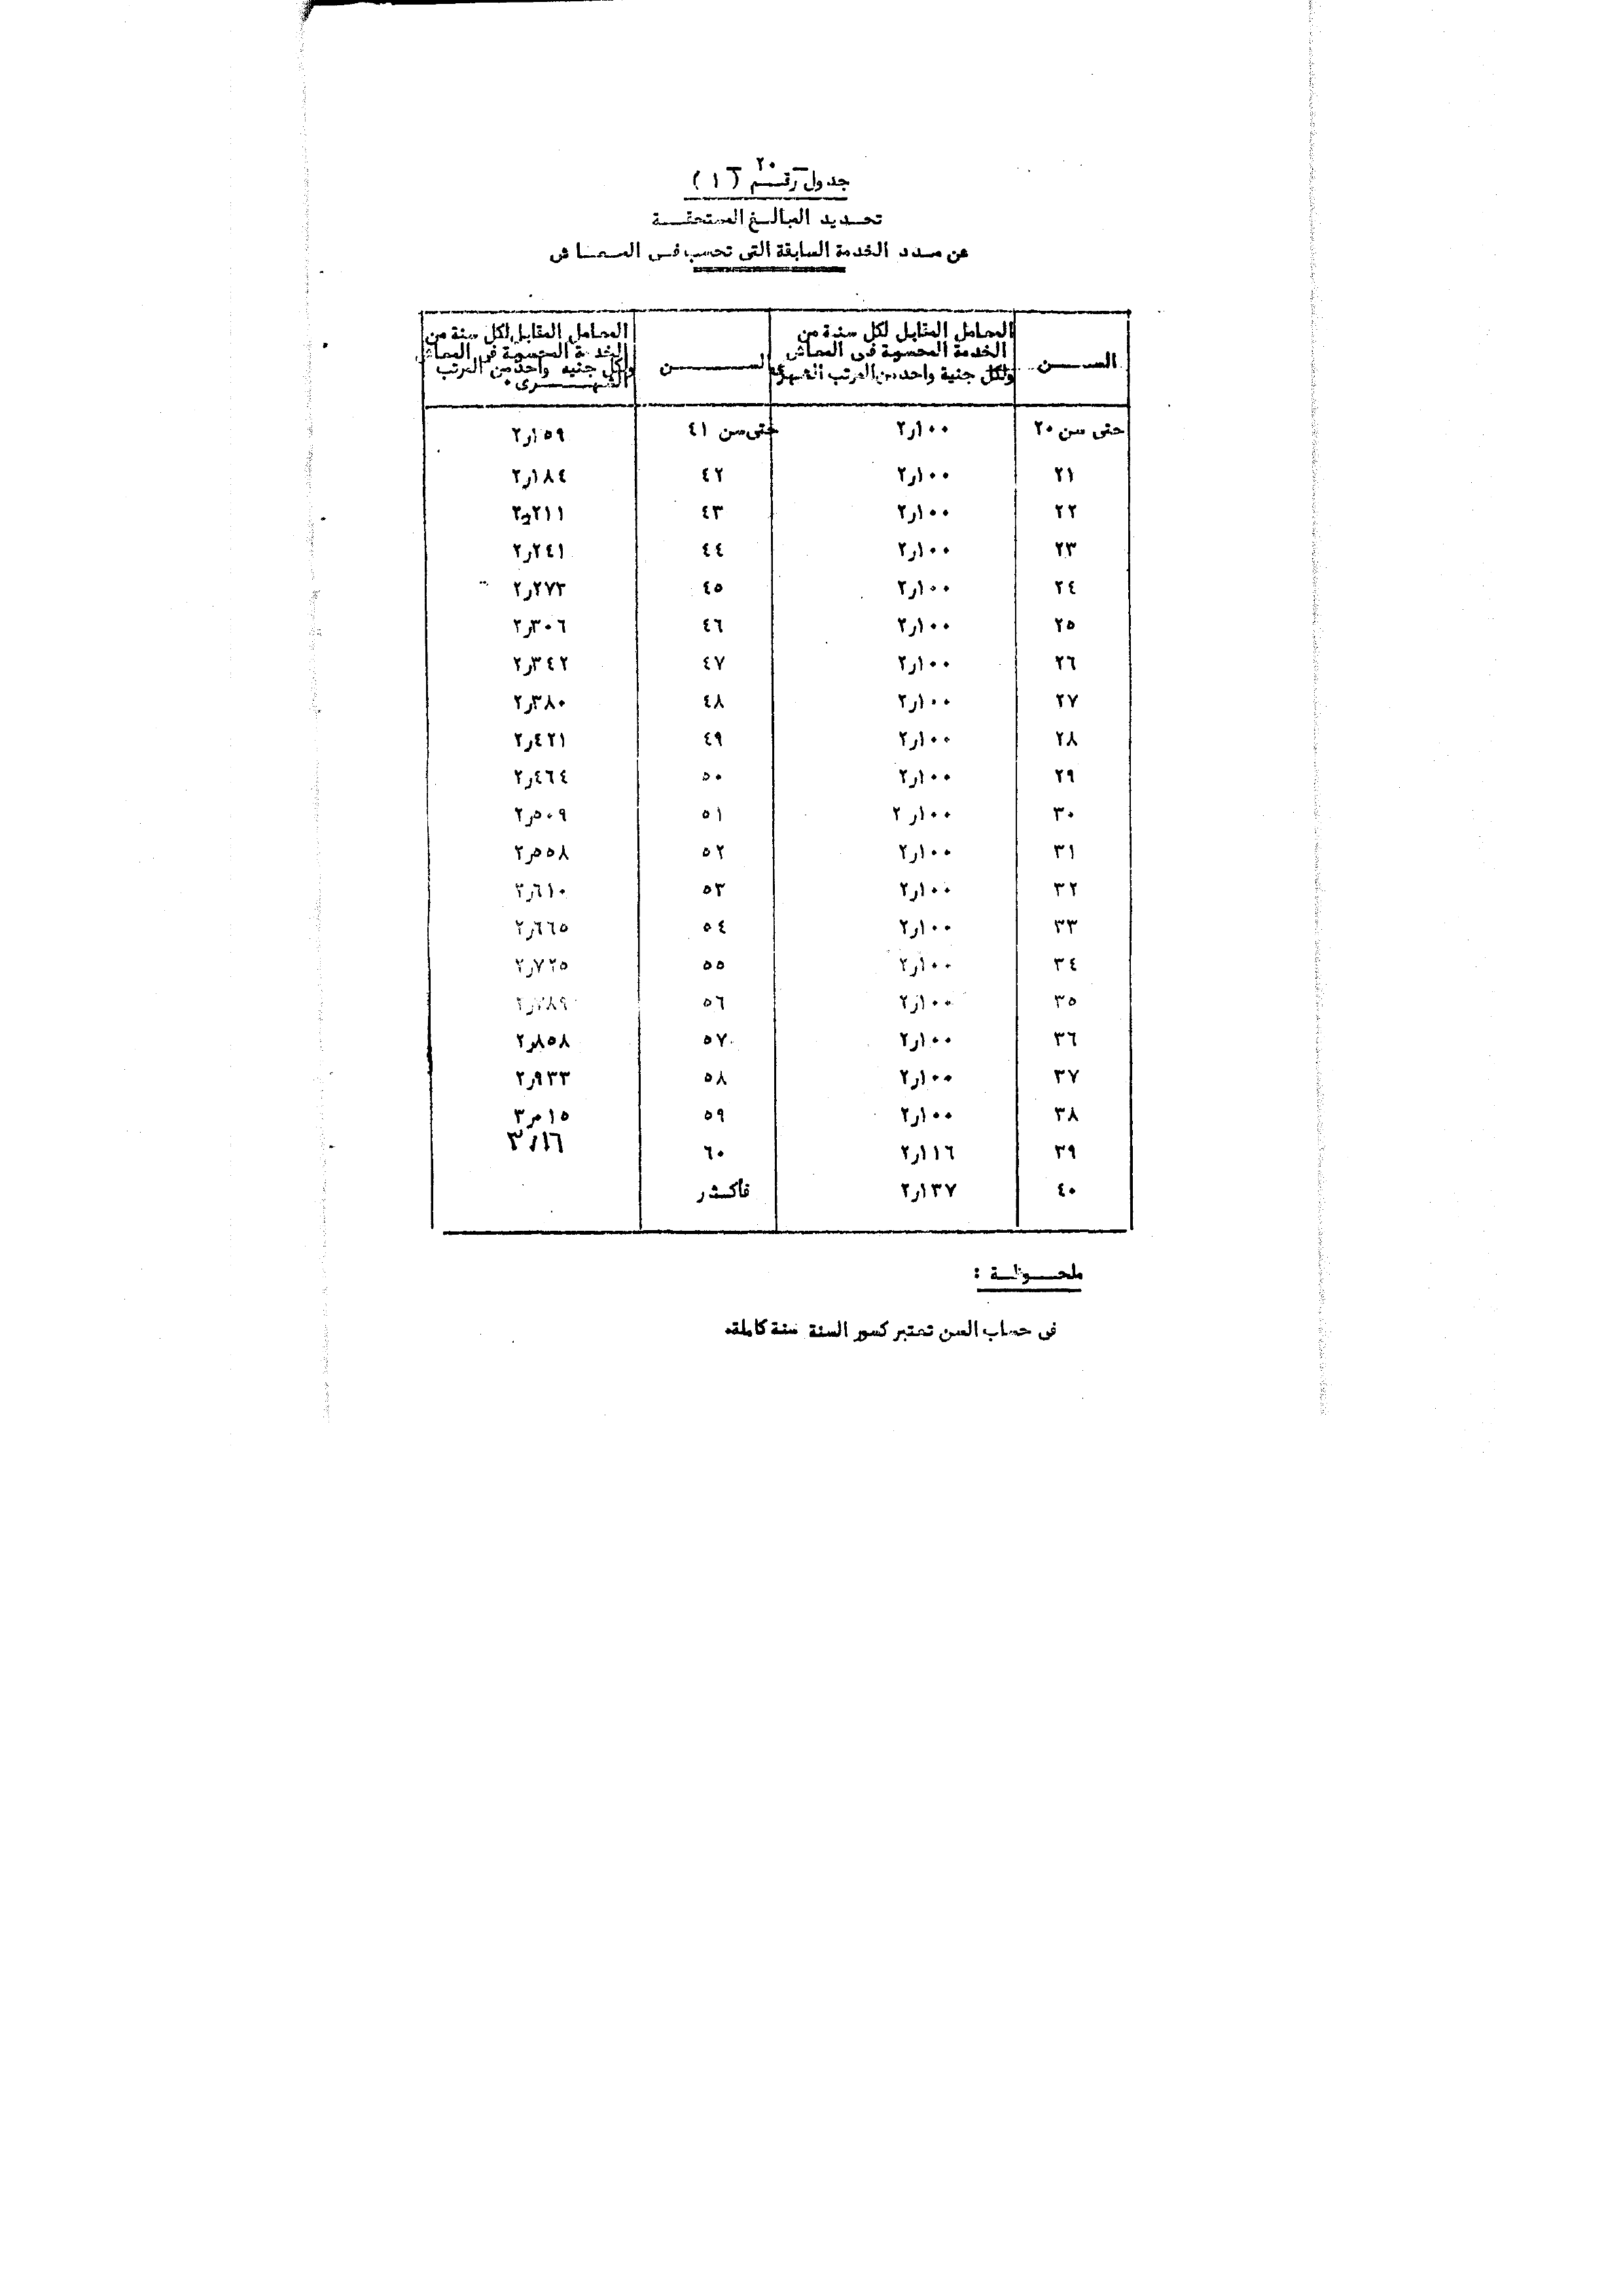 ٢٠
جدول رقم (١)
تحديد المبالغ المستحقة
عن مدد الخدمة السابقة التى تحسب فى المعاش
السن | المعامل المقابل لكل سنة من الخدمة المحسوبة فى المعاش ولكل جنية واحد من المرتب الشهرى | السن | المعامل المقابل لكل سنة من الخدمة المحسوبة فى المعاش ولكل جنيه واحد من المرتب الشهرى ٠
حتى سن ٢٠ | ٢٫١٠٠ | حتى سن ٤١ | ٢٫١٥٩
٢١ | ٢٫١٠٠ | ٤٢ | ٢٫١٨٤
٢٢ | ٢٫١٠٠ | ٤٣ | ٢٫٢١١
٢٣ | ٢٫١٠٠ | ٤٤ | ٢٫٢٤١
٢٤ | ٢٫١٠٠ | ٤٥ | ٢٫٢٧٣
٢٥ | ٢٫١٠٠ | ٤٦ | ٢٫٣٠٦
٢٦ | ٢٫١٠٠ | ٤٧ | ٢٫٣٤٢
٢٧ | ٢٫١٠٠ | ٤٨ | ٢٫٣٨٠
٢٨ | ٢٫١٠٠ | ٤٩ | ٢٫٤٢١
٢٩ | ٢٫١٠٠ | ٥٠ | ٢٫٤٦٤
٣٠ | ٢٫١٠٠ | ٥١ | ٢٫٥٠٩
٣١ | ٢٫١٠٠ | ٥٢ | ٢٫٥٥٨
٣٢ | ٢٫١٠٠ | ٥٣ | ٢٫٦١٠
٣٣ | ٢٫١٠٠ | ٥٤ | ٢٫٦٦٥
٣٤ | ٢٫١٠٠ | ٥٥ | ٢٫٧٢٥
٣٥ | ٢٫١٠٠ | ٥٦ | ٢٫٧٨٩
٣٦ | ٢٫١٠٠ | ٥٧ | ٢٫٨٥٨
٣٧ | ٢٫١٠٠ | ٥٨ | ٢٫٩٣٣
٣٨ | ٢٫١٠٠ | ٥٩ | ٣٫٠١٥
٣٩ | ٢٫١١٦ | ٦٠ | ٣٫١١٦
٤٠ | ٢٫١٣٧ | فأكثر
ملحوظة :
فى حساب السن تعتبر كسور السنة سنة كاملة٠